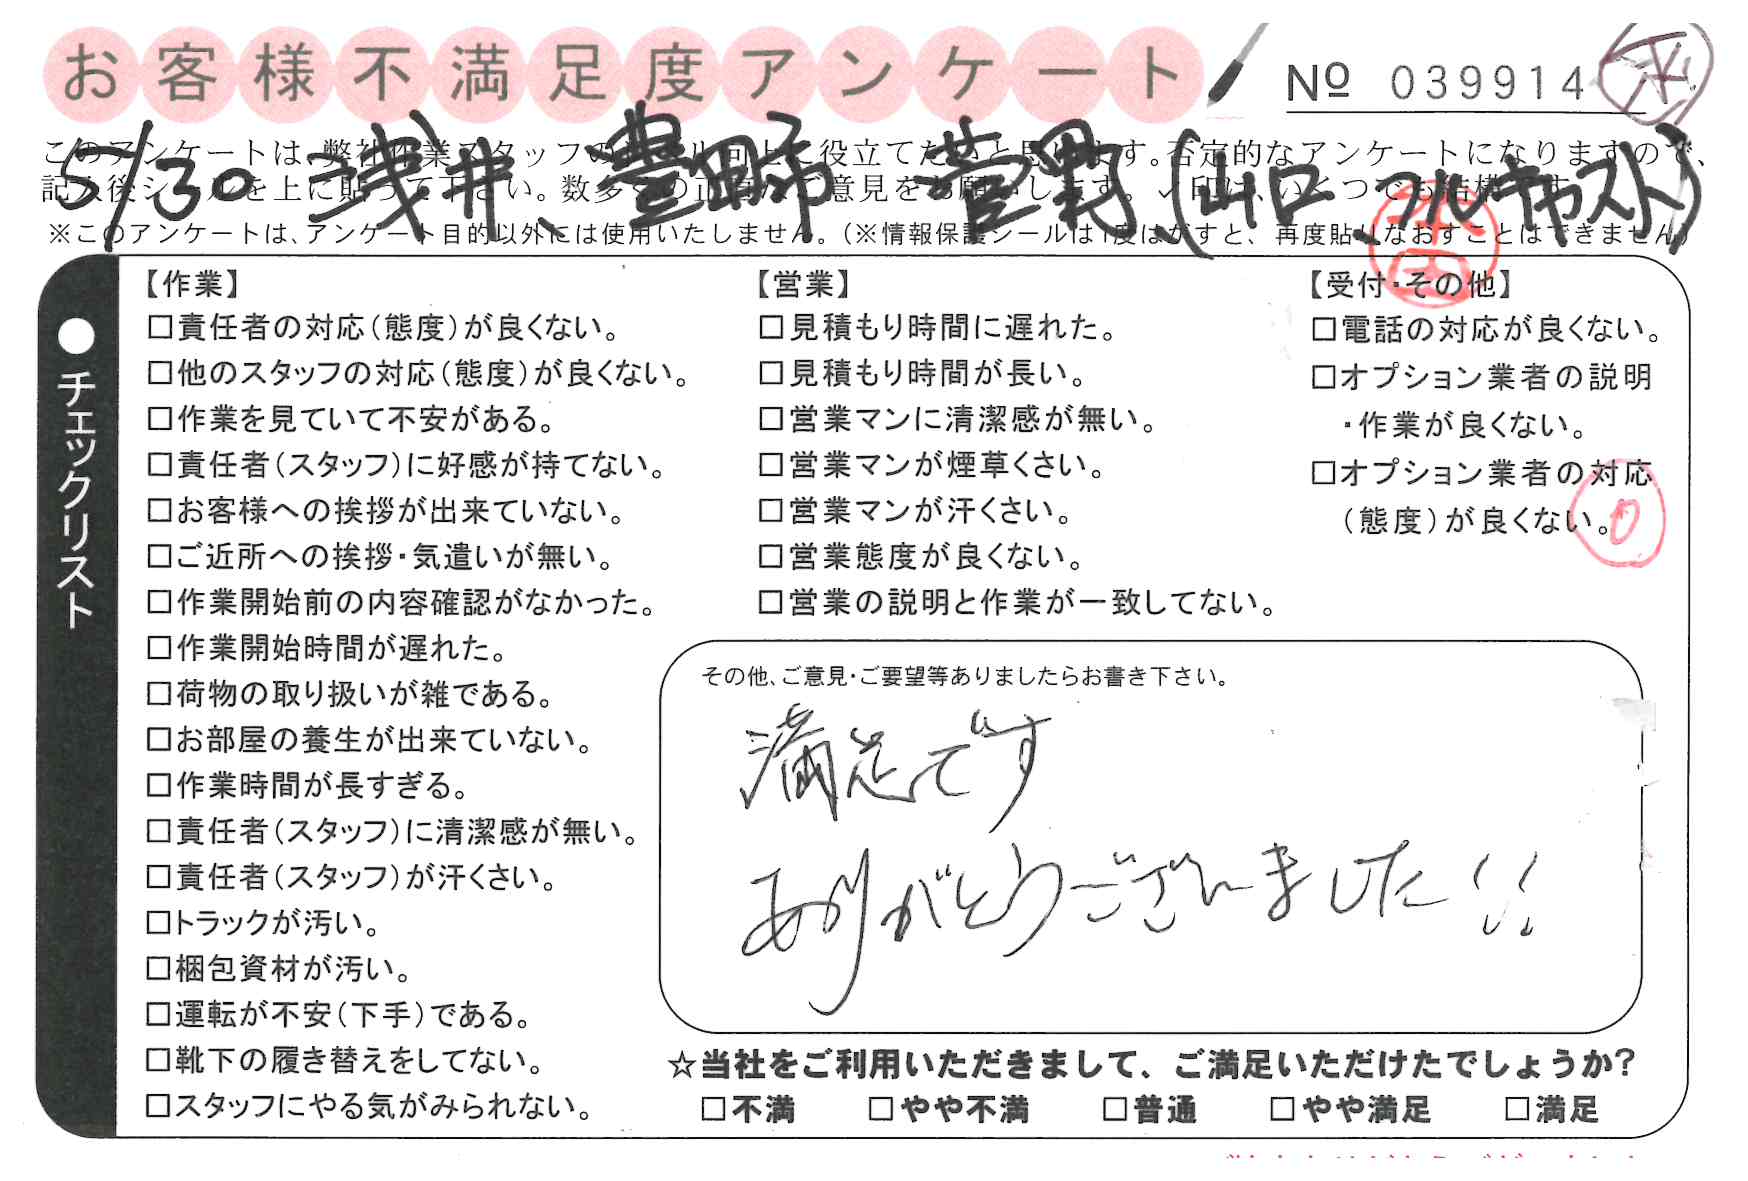 お客様不満足度アンケート
№ 039914
5/30 浅井、豊野、菅野(山口、フルキャスト)
このアンケートは、弊社作業スタッフの
役立てたいと思います。否定的なアンケートになりますので、
記入後シールを上に貼って下さい。数多くの正直なご意見をお願いします。✓印は、いくつでも結構です。
※このアンケートは、アンケート目的以外には使用いたしません。(※情報保護シールは1度はがすと、再度貼りなおすことはできません)
●チェックリスト
【作業】
□責任者の対応(態度)が良くない。
□他のスタッフの対応(態度)が良くない。
□作業を見ていて不安がある。
□責任者(スタッフ)に好感が持てない。
□お客様への挨拶が出来ていない。
□ご近所への挨拶・気遣いが無い。
□作業開始前の内容確認がなかった。
□作業開始時間が遅れた。
□荷物の取り扱いが雑である。
□お部屋の養生が出来ていない。
□作業時間が長すぎる。
□責任者(スタッフ)に清潔感が無い。
□責任者(スタッフ)が汗くさい。
□トラックが汚い。
□梱包資材が汚い。
□運転が不安(下手)である。
□靴下の履き替えをしてない。
□スタッフにやる気がみられない。
【営業】
□見積もり時間に遅れた。
□見積もり時間が長い。
□営業マンに清潔感が無い。
□営業マンが煙草くさい。
□営業マンが汗くさい。
□営業態度が良くない。
□営業の説明と作業が一致してない。
【受付・その他】
□電話の対応が良くない。
□オプション業者の説明
・作業が良くない。
□オプション業者の対応
(態度)が良くない。
0
その他、ご意見・ご要望等ありましたらお書き下さい。
満足です
ありがとうございました!!
☆当社をご利用いただきまして、ご満足いただけたでしょうか?
□不満 □やや不満 □普通 □やや満足 □満足